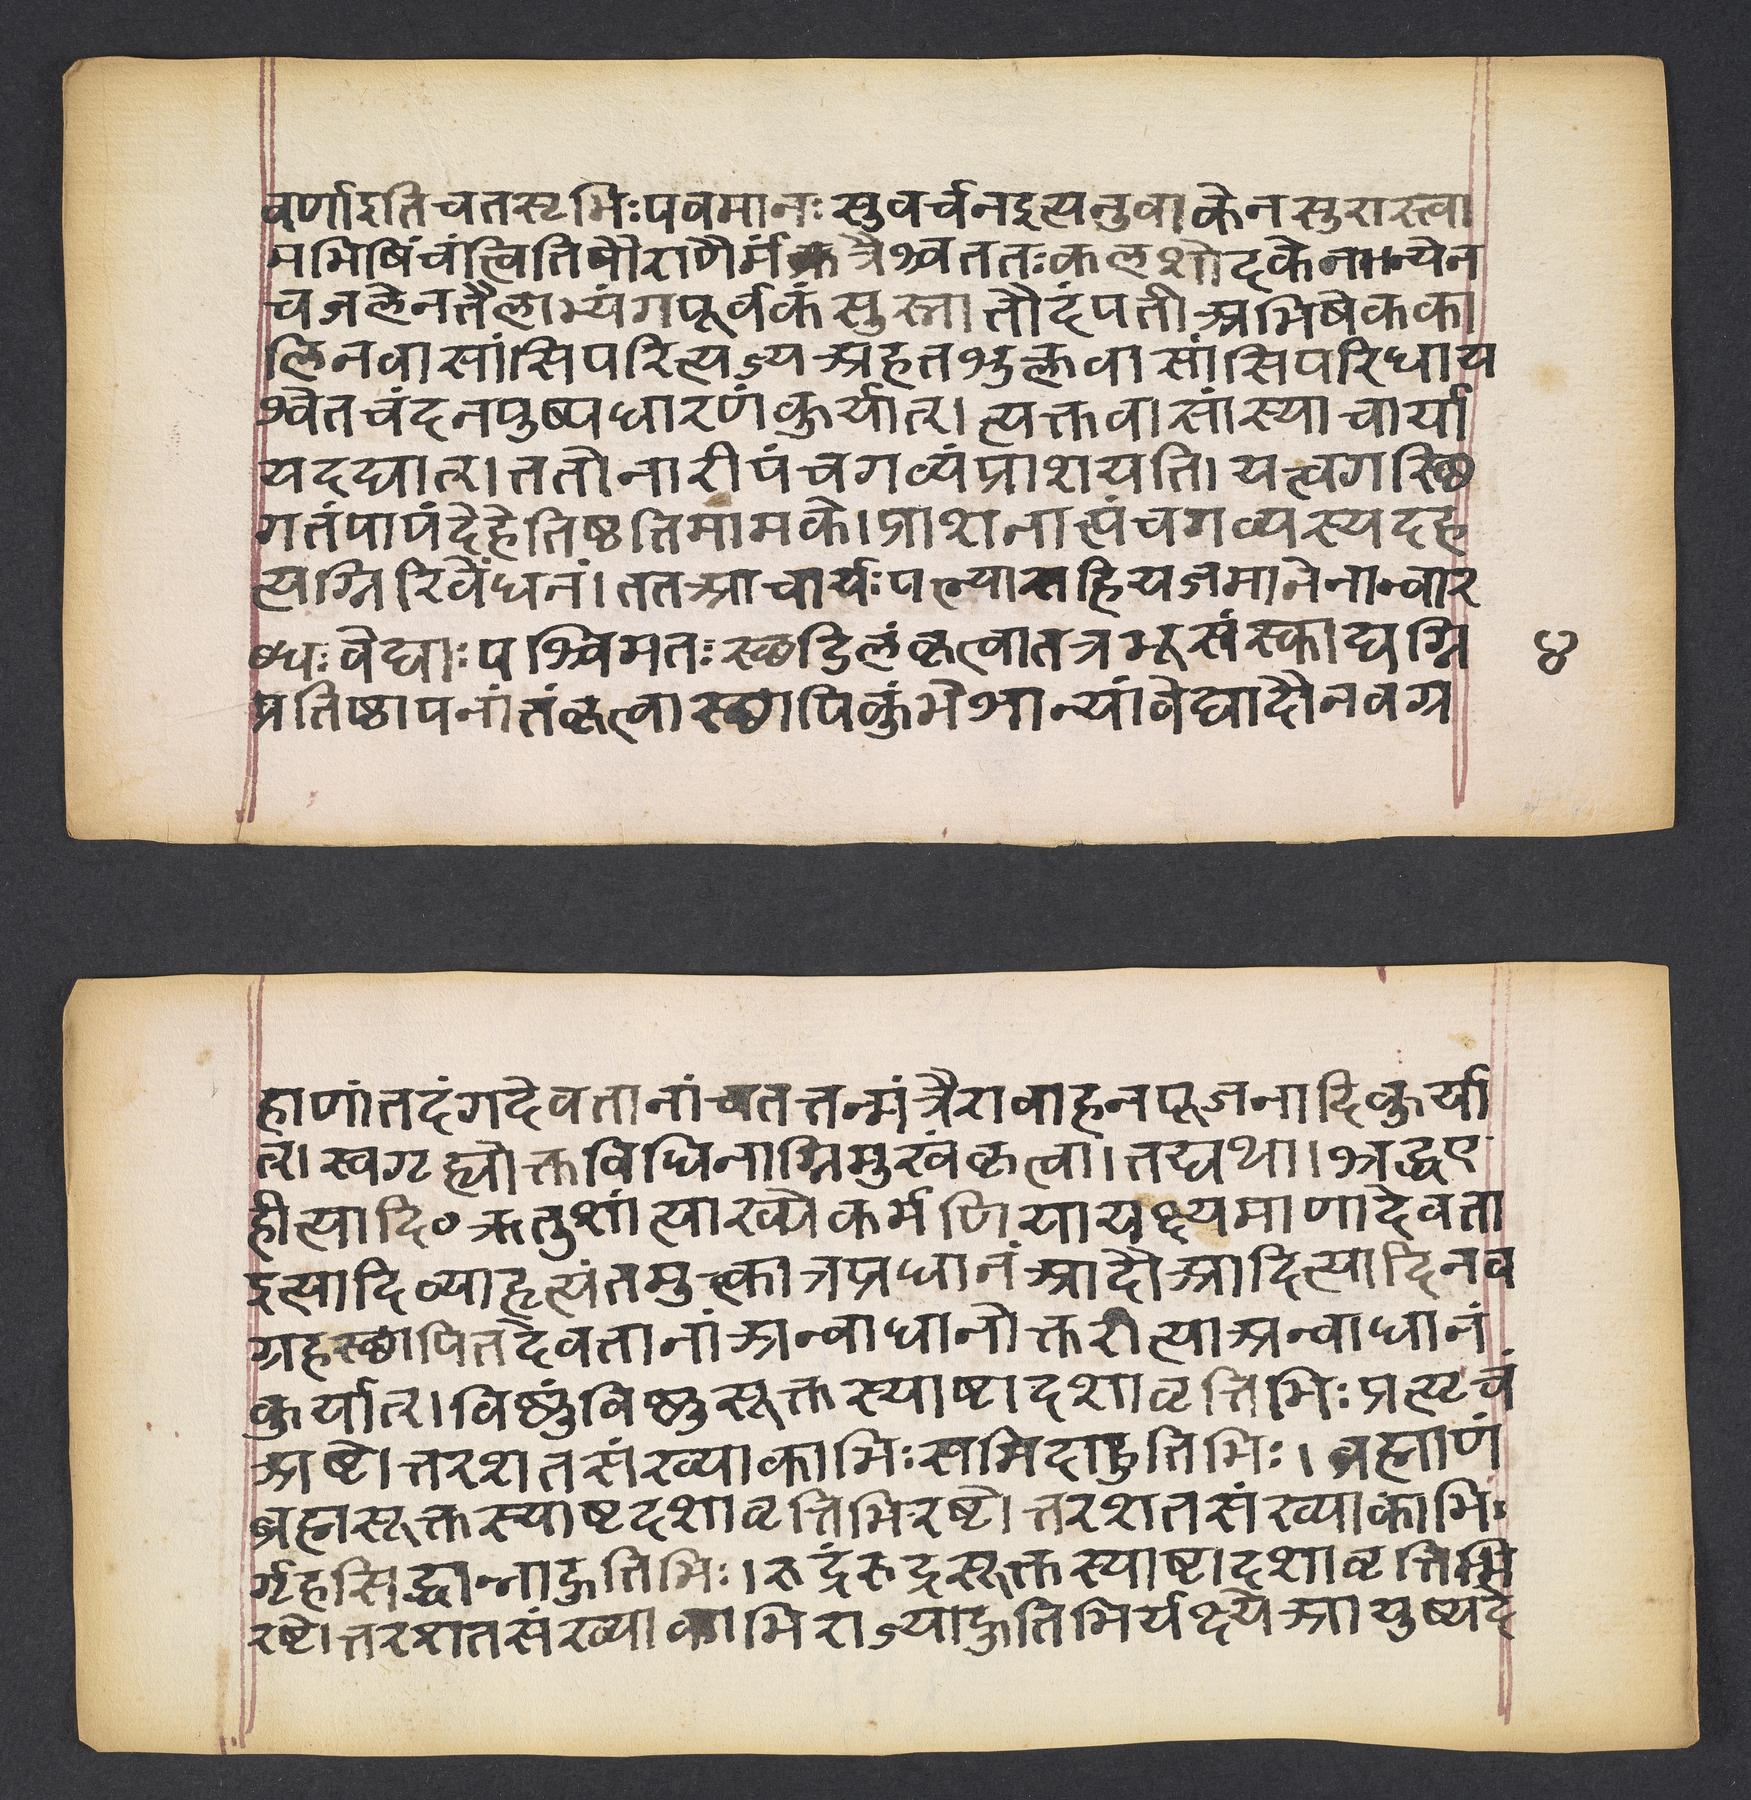 वर्णाइतिचतसृभिःपवमानःसुवर्चनइत्यनुवाकेनसुरास्त्वा
मभिषिंचंत्वितिषौराणैर्मंत्रैश्वततःकलशोदकेनान्येन
चजलेनतैलाभ्यंगपूर्वकंसुस्नातौदंपतीअभिषेकका
लिनवासांसिपरित्यज्यअहतशुक्लवासांसिपरिधाय
श्वेतचंदनपुष्पधारणंकुर्यात्। त्यक्तवासांस्याचार्या
यदद्यात्। ततोनारीपंचगव्यंप्राशयति। यत्त्वगस्थि
गतंपापंदेहेतिष्ठत्तिमामके। प्राशनात्पंचगव्यस्यदह
त्यग्निरिवेंधनं। ततआचार्यःपत्न्यासहियजमानेनान्वार
ब्धःवेद्याःपश्चिमतःस्थंडिलंकृत्वातत्रभूसंस्काद्यग्नि
प्रतिष्ठापनांतंकृत्वास्थापिकुंभेशान्यांवेद्यादौनवग्र
४
हाणांतदंगदेवतानांचतत्तन्मंत्रैरावाहनपूजनादिकुर्या
त्। स्वगृह्योक्तविधिनाग्निमुखंकृत्वा। तद्यथा। श्रद्धए
हीत्यादि॰ऋतुशांत्याख्येकर्मणियायक्ष्यमाणादेवता
इत्यादिव्याहृत्यंतमुक्त्कात्रप्रधानंआदौआदित्यादिनव
ग्रहस्थापितदेवतानांअन्वाधानोक्तरीत्याअन्वाधानं
कुर्यात्। विष्णुंविष्णुसूक्तस्याष्टादशावृत्तिभिःप्रत्यृचं
अष्टोत्तरशतसंख्याकाभिःसमिदाहुतिभिः। ब्रह्माणं
ब्रह्मसूक्तस्याष्टदशावृत्तिभिरष्टोत्तरशतसंख्याकाभिः
र्गृहसिद्धान्नाहुतिभिः। रुद्रंरुद्रसूक्तस्याष्टादशावृत्तिभि
रष्टोत्तरशतसंख्याकाभिराज्याहुतिभिर्यक्ष्येआयुष्यदे